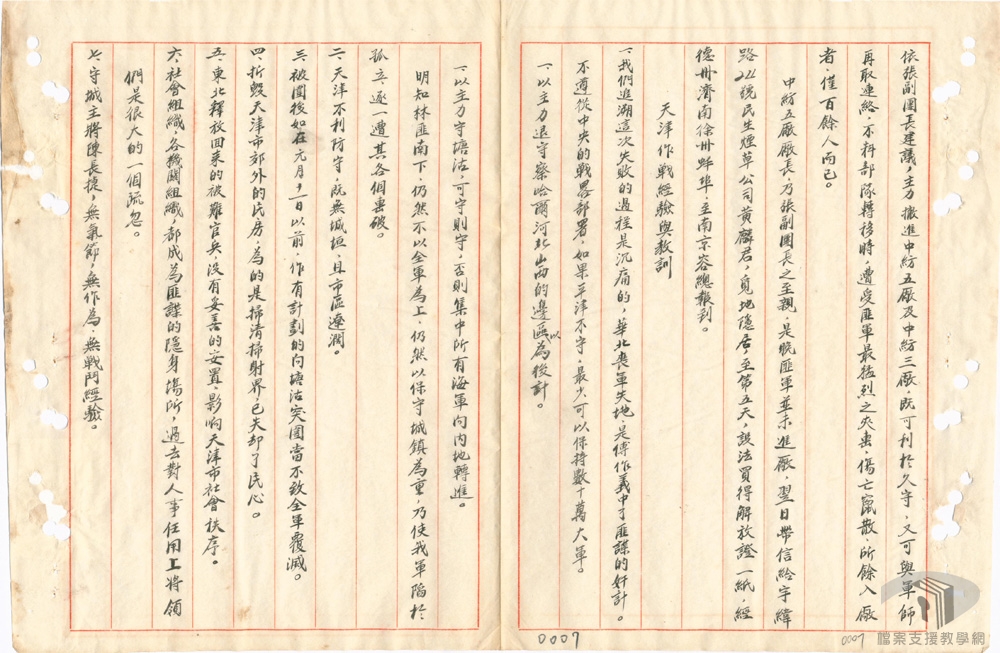 依張副團長建議，主力撤進中紡五廠及中紡三廠，既可利於久守，又可與軍師
再取連絡，不料部隊轉移時，遭受匪軍最猛烈之夾擊，傷亡竄散，所餘入廠
者，僅百餘人而已。
中紡五廠廠長乃張副團長之至親，是晚匪軍並未進廠，翌日帶信給宇緯
路224號民生煙草公司黃麟君，覓地隱居，至第五天，設法買得解放證一紙，經
德州濟南徐州蚌埠，至南京晉總報到。
天津作戰經驗與教訓
一、我們追溯這次失敗的過程是沉痛的，華北喪軍失地，是傅作義中了匪諜的奸計。
不遵從中央的戰略部署，如果平津不守，最少可以保持數十萬大軍。
一、以主力退守察哈爾河北山西的邊區以為後計。
一、以主力守塘沽，可守則守，否則集中所有海軍向內地轉進。
明知林匪南下，仍然不以全軍為上，仍然以保守城鎮為重，乃使我軍陷於
孤立，逐一遭其各個擊破。
二、天津不利防守，既無城垣，且市區遼濶。
三、被圍後如在元月十一日以前，作有計劃的向塘沽突圍當不致全軍覆滅。
四、折毀天津市郊外的民房，為的是掃清掃射界，已失却了民心。
五、東北釋放回來的被難官兵，沒有妥善的安置，影响天津市社會秩序。
六、社會組織，各機關組織，都成為匪諜的隱身場所，過去對人事任用上將領
們是很大的一個疏忽。
七、守城主將陳長捷，無氣節，無作為，無戰鬥經驗。
0007
0007
檔案支援教學網